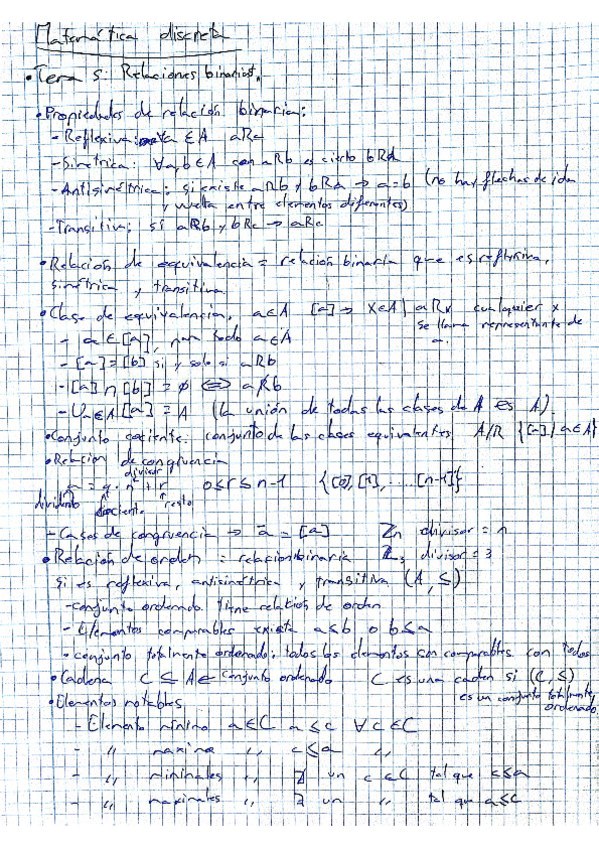 Matemática discreta
• Tema 5: Relaciones binarias.
• Propiedades de relación binaria:
- Reflexiva: ∈ A aRa
- Simétrica: ∀a,b ∈ A con aRb es cierto bRa
- Antisimétrica: si existe aRb y bRa → a=b (no hay flechas de ida
y vuelta entre elementos diferentes)
- Transitiva: si aRb y bRc → aRc
• Relación de equivalencia = relación binaria que es reflexiva,
simétrica y transitiva
• Clase de equivalencia. a∈A [a] → x∈A | aRx cualquier x
se llama representante de
a.
- a ∈ [a], para todo a ∈ A
- [a] = [b] si y solo si aRb
- [a] ∩ [b] = ∅ ⟺ a R̸ b
- ∪a∈A [a] = A (la unión de todas las clases de A es A)
• Conjunto cociente. conjunto de las clases equivalentes A/R {[a] | a∈A}
• Relación de congruencia
divisor
a = q · n + r 0≤r≤n-1 {[0],[1],....[n-1]}
dividendo cociente resto
- Casos de congruencia → ā = [a] Zn divisor = n
• Relación de orden = relación binaria Z3 divisor = 3
si es reflexiva, antisimétrica y transitiva (A, ≤)
- conjunto ordenado tiene relación de orden
- Elementos comparables existe a≤b o b≤a
• conjunto totalmente ordenado: todos los elementos son comparables con todos
• Cadena C ⊆ A ← Conjunto ordenado C es una caden si (C, ≤)
es un conjunto totalmente
ordenado
• Elementos notables
- Elemento mínimo a∈C a≤c ∀c∈C
- " maximo " c≤a "
- " minimales " ∄ un c∈C tal que c≤a
- " maximales " ∄ un " tal que a≤c